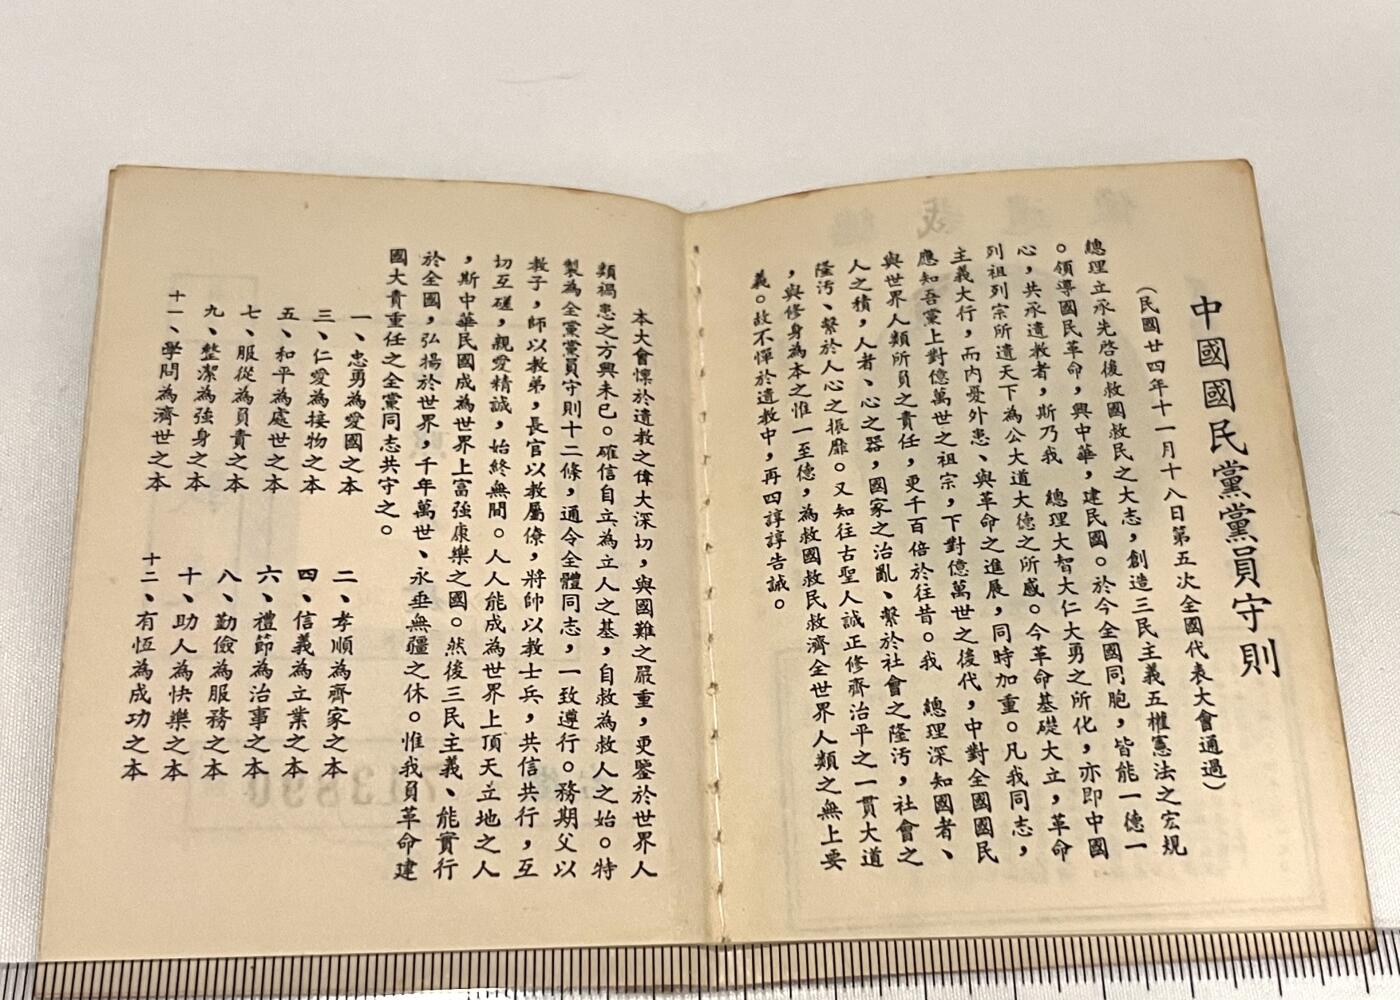 中國國民黨黨員守則
（民國廿四年十一月十八日第五次全國代表大會通過）
總理立承先啓後救國救民之大志，創造三民主義五權憲法之宏規
。領導國民革命，興中華，建民國。於今全國同胞，皆能一德一
心，共承遺教者，斯乃我　總理大智大仁大勇之所化，亦即中國
列祖列宗所遺天下為公大道大德之所感。今革命基礎大立，革命
主義大行，而內憂外患、與革命之進展，同時加重。凡我同志，
應知吾黨上對億萬世之祖宗，下對億萬世之後代，中對全國國民
與世界人類所負之責任，更千百倍於往昔。我　總理深知國者、
人之積，人者、心之器，國家之治亂、繫於社會之隆汚，社會之
隆汚、繫於人心之振靡。又知往古聖人誠正修齊治平之一貫大道
，與修身為本之惟一至德，為救國救民救濟全世界人類之無上要
義。故不憚於遺教中，再四諄諄告誡。
本大會懍於遺教之偉大深切，與國難之嚴重，更鑒於世界人
類禍患之方興未已。確信自立為立人之基，自救為救人之始。特
製為全黨黨員守則十二條，通令全體同志，一致遵行。務期父以
教子，師以教弟，長官以教屬僚，將帥以教士兵，共信共行，互
切互磋，親愛精誠，始終無間。人人能成為世界上頂天立地之人
，斯中華民國成為世界上富強康樂之國。然後三民主義、能實行
於全國，弘揚於世界，千年萬世、永垂無疆之休。惟我員革命建
國大責重任之全黨同志共守之。
一、忠勇為愛國之本
二、孝順為齊家之本
三、仁愛為接物之本
四、信義為立業之本
五、和平為處世之本
六、禮節為治事之本
七、服從為負責之本
八、勤儉為服務之本
九、整潔為強身之本
十、助人為快樂之本
十一、學問為濟世之本
十二、有恆為成功之本